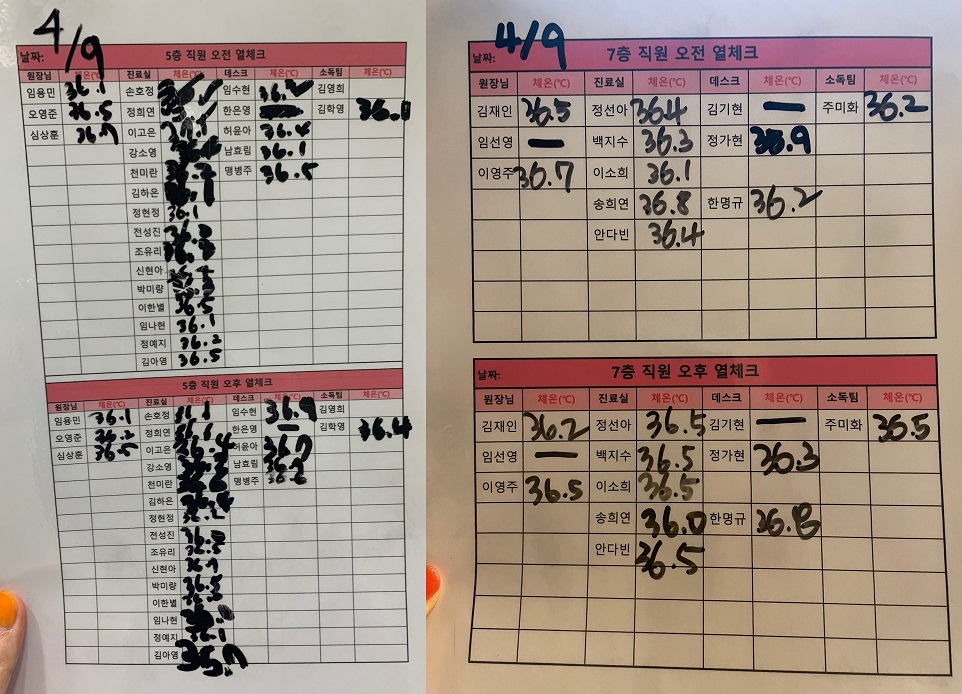 4/9
날짜: 5층 직원 오전 열체크
원장님 체온(℃) 진료실 체온(℃) 데스크 체온(℃) 소독팀 체온(℃)
임용민 36.1 손호정 임수현 36.2 김영희
오영준 36.5 정희연 한은영 김학영 36.1
심상훈 36.7 이고은 허윤아 36.4
강소영 남효림 36.1
천미란 36.2 맹병주 36.5
김하은
정현정 36.1
전성진
조유리
신현아
박미량
이한별 36.5
임나현 36.1
정예지 36.2
김아영 36.5
5층 직원 오후 열체크
원장님 체온(℃) 진료실 체온(℃) 데스크 체온(℃) 소독팀 체온(℃)
임용민 36.1 손호정 임수현 36.9 김영희
오영준 36.2 정희연 한은영 — 김학영 36.4
심상훈 36.5 이고은 36.4 허윤아 36.7
강소영 남효림
천미란 맹병주 36.6
김하은
정현정 36.2
전성진
조유리
신현아 36.7
박미량 36.5
이한별
임나현
정예지 36.1
김아영
4/9
날짜: 7층 직원 오전 열체크
원장님 체온(℃) 진료실 체온(℃) 데스크 체온(℃) 소독팀 체온(℃)
김재인 36.5 정선아 36.4 김기현 — 주미화 36.2
임선영 — 백지수 36.3 정가현 36.9
이영주 36.7 이소희 36.1
송희연 36.8 한명규 36.2
안다빈 36.4
날짜: 7층 직원 오후 열체크
원장님 체온(℃) 진료실 체온(℃) 데스크 체온(℃) 소독팀 체온(℃)
김재인 36.2 정선아 36.5 김기현 — 주미화 36.5
임선영 — 백지수 36.5 정가현 36.3
이영주 36.5 이소희 36.5
송희연 36.0 한명규
안다빈 36.5